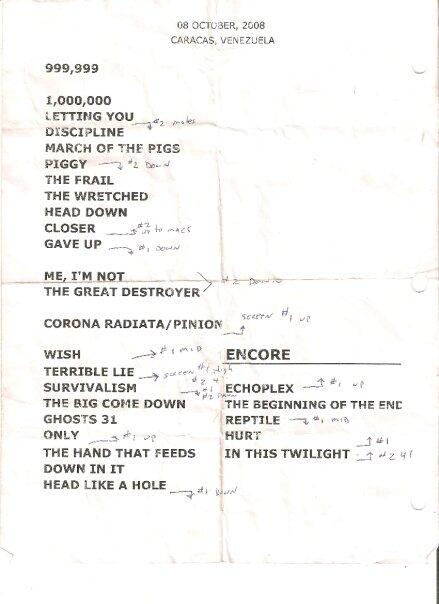 08 OCTOBER, 2008
CARACAS, VENEZUELA
999,999
1,000,000
LETTING YOU
DISCIPLINE #2
MARCH OF THE PIGS
PIGGY → #2 DOWN
THE FRAIL
THE WRETCHED
HEAD DOWN
CLOSER → #2 UP to
GAVE UP → #1 DOWN
ME, I'M NOT
THE GREAT DESTROYER #2 DOWN
CORONA RADIATA/PINION SCREEN #1 UP
WISH → #1 MID
TERRIBLE LIE → SCREEN #1 High
SURVIVALISM #2
THE BIG COME DOWN #1 #2 DOWN
GHOSTS 31
ONLY → #1 UP
THE HAND THAT FEEDS
DOWN IN IT
HEAD LIKE A HOLE → #1 DOWN
ENCORE
ECHOPLEX → #1 UP
THE BEGINNING OF THE END
REPTILE → #1 MID
HURT ↑ #1
IN THIS TWILIGHT ↑ #2